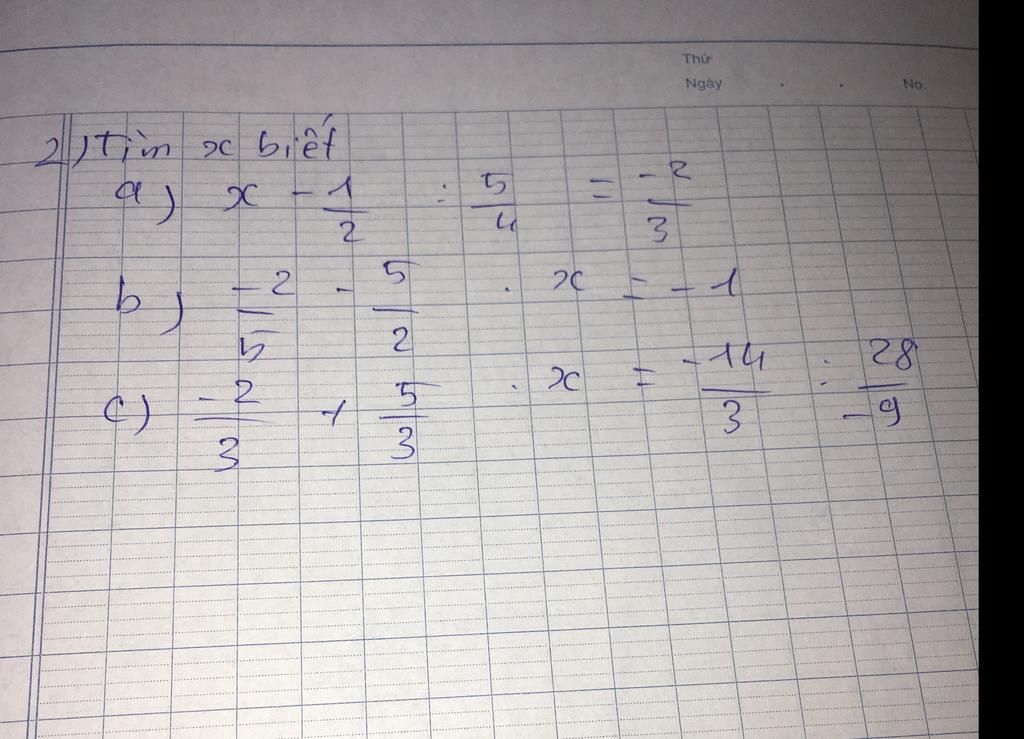 Thứ
Ngày . . No.
2) Tìm x biết
a) x - 1/2 : 5/4 = -2/3
b) -2/5 - 5/2 . x = -1
c) -2/3 + 5/3 . x = -14/3 : 28/-9